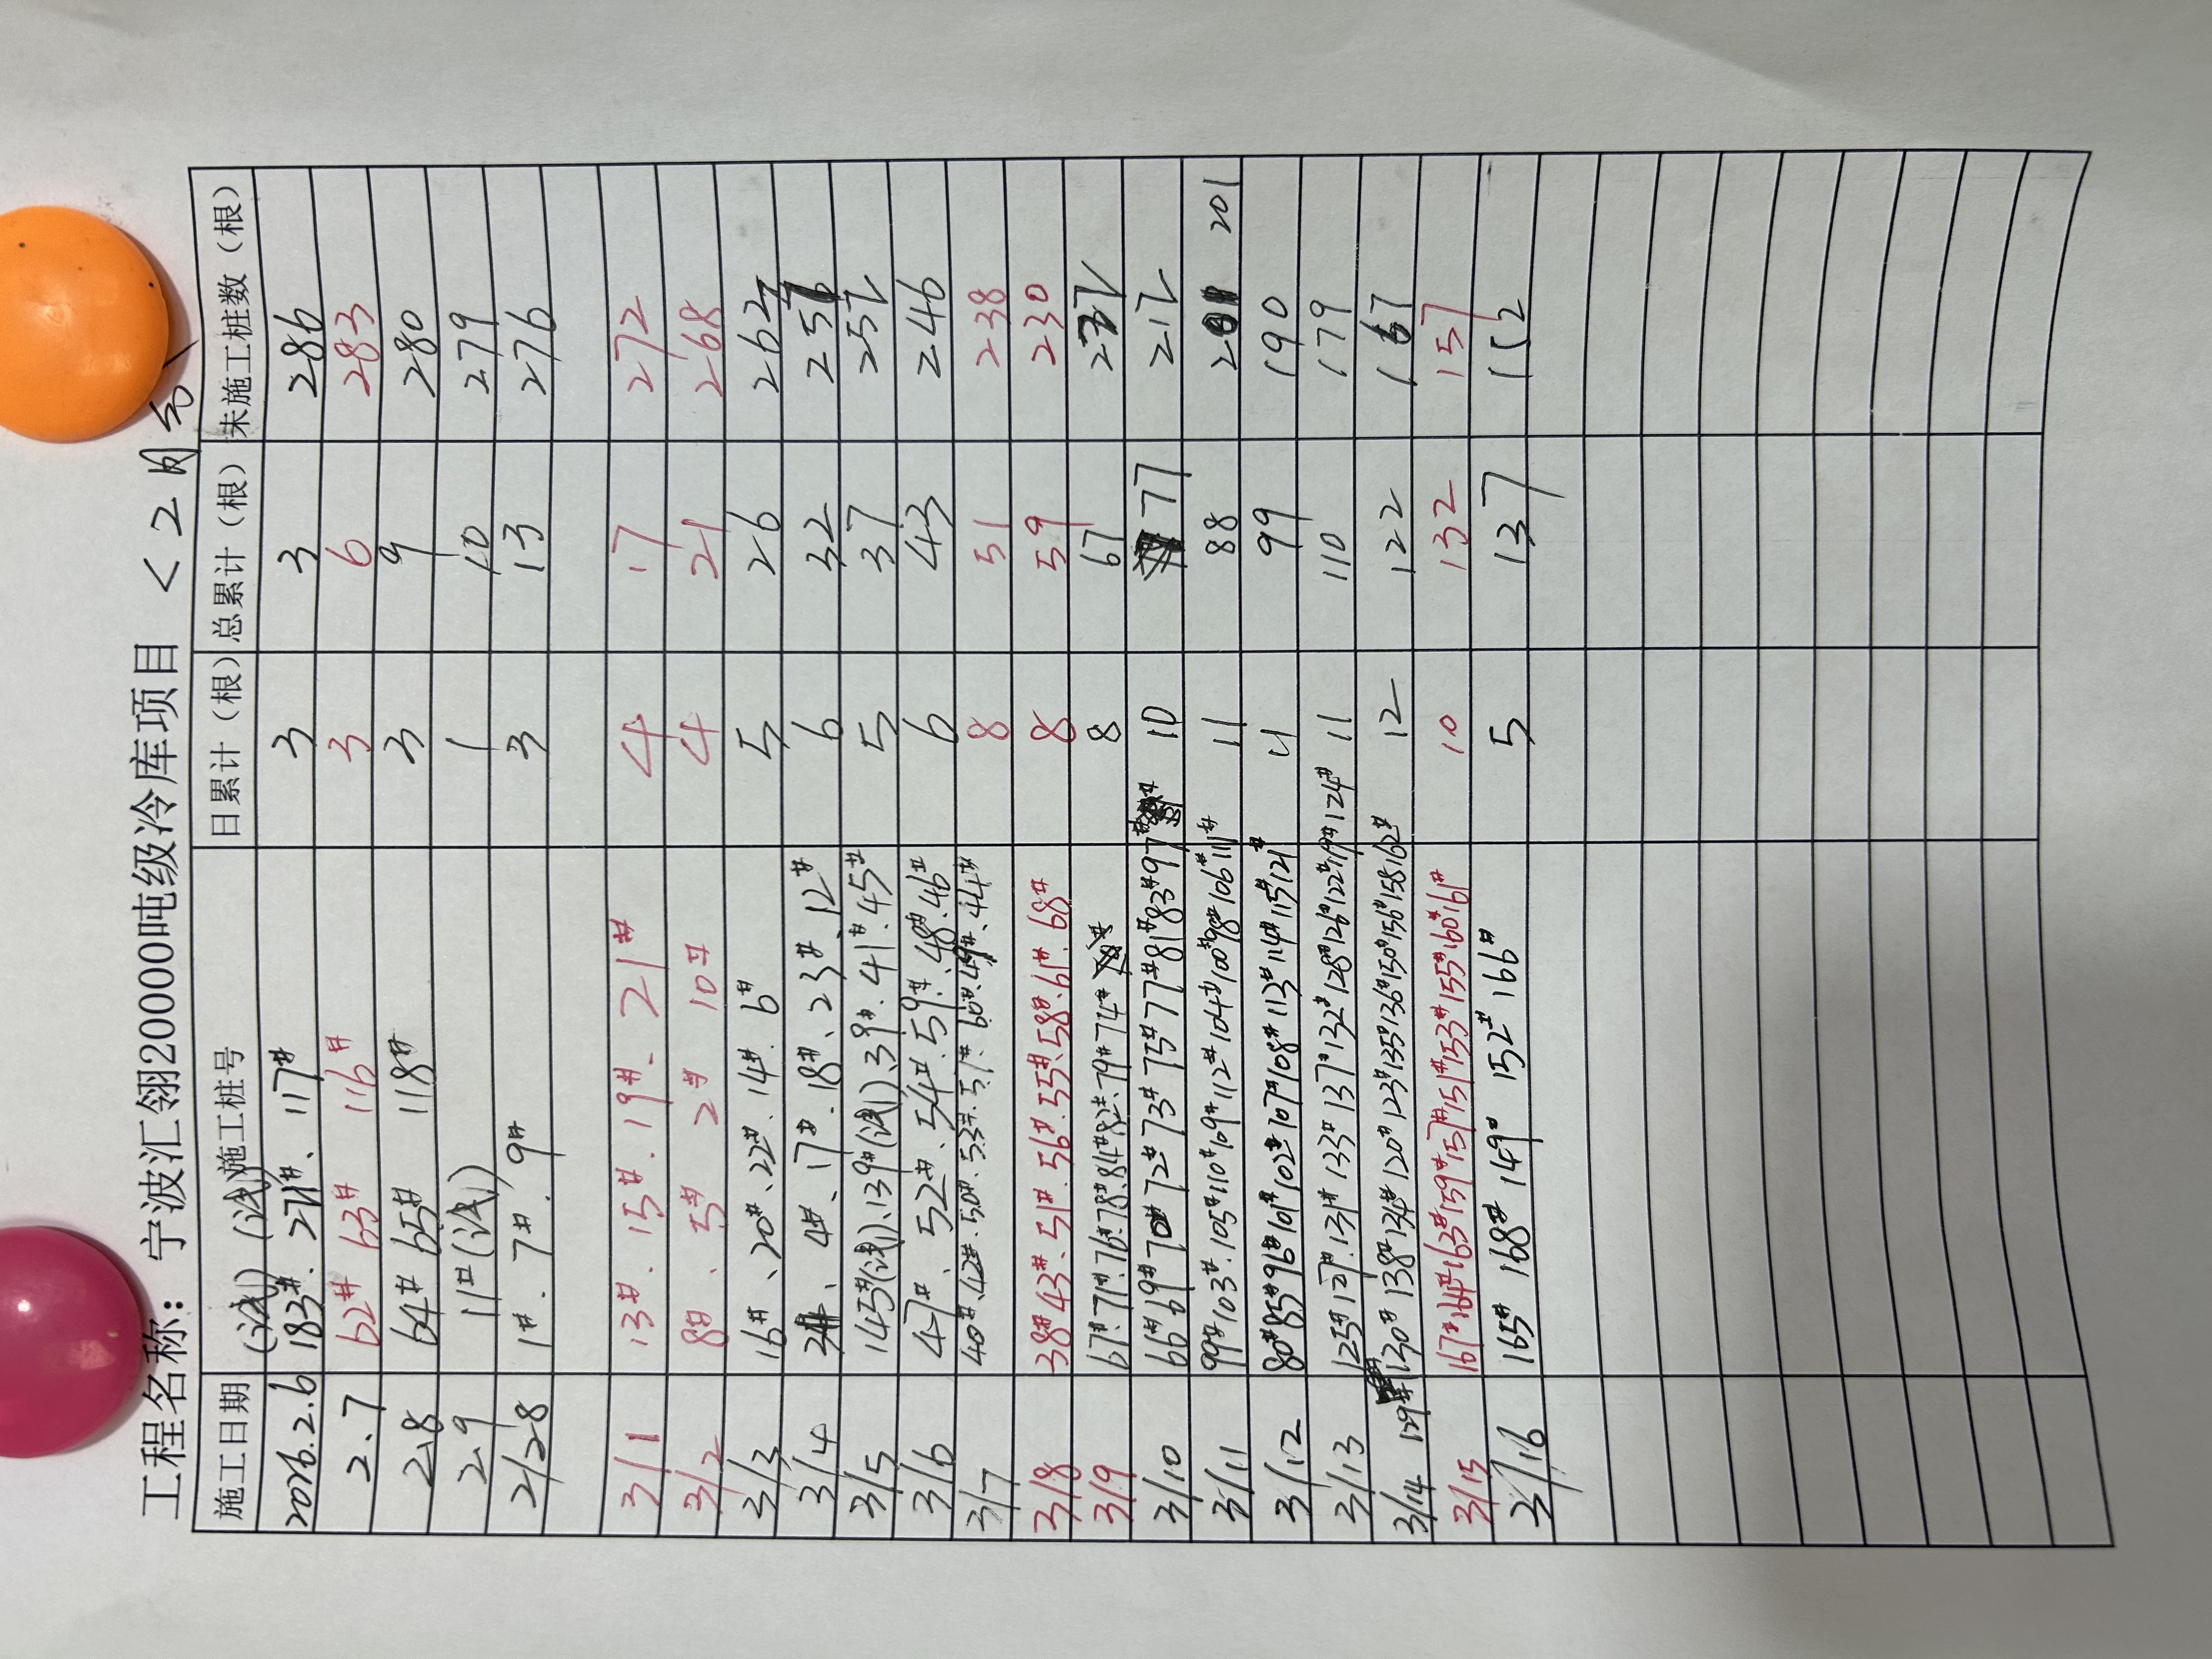 工程名称: 宁波汇翎20000吨级冷库项目 <2月份>
施工日期 施工桩号 日累计(根) 总累计(根) 未施工桩数(根)
(试) (试)
2026.2.6 183#、271#、117# 3 3 286
2.7 62# 63# 116# 3 6 283
2.8 64# 65# 118# 3 9 280
2.9 11#(试) 1 10 279
2/28 1#. 7#. 9# 3 13 276
3/1 13#、15#.19#、21# 4 17 272
3/2 8#、5# 2# 10# 4 21 268
3/3 16#、20#、22#、14#. 6# 5 26 262
3/4 4#、17#.18#、23#.12# 6 32
3/5 145#(试).139#(试).39#.41#.45# 5 37 252
3/6 47#、52#、54#.59#.48#.46# 6 43 246
3/7 40#、42#.50#.53#.57#.60#.49#.44# 8 51 238
3/8 38#43#、51#.56#.55#.58#.61#.68# 8 59 230
3/9 67#.71#.76#.78#.84#.82#.79#74# 8 67
3/10 66#69#70#72#73#75#77#81#83#97# 10 77 212
3/11 99#103#.105#110#109#112#104#100#98#106#111# 11 88 201
3/12 80#85#96#101#102#107#108#113#114#115#121# 11 99 190
3/13 125#127#.131#133#137#132#128#126#122#119#124# 11 110 179
3/14 129#130#138#134#120#123#135#136#150#156#158#162# 12 122 167
3/15 167#164#163#159#157#151#153#155#160#161# 10 132 157
3/16 165# 168# 149# 152# 166# 5 137 152